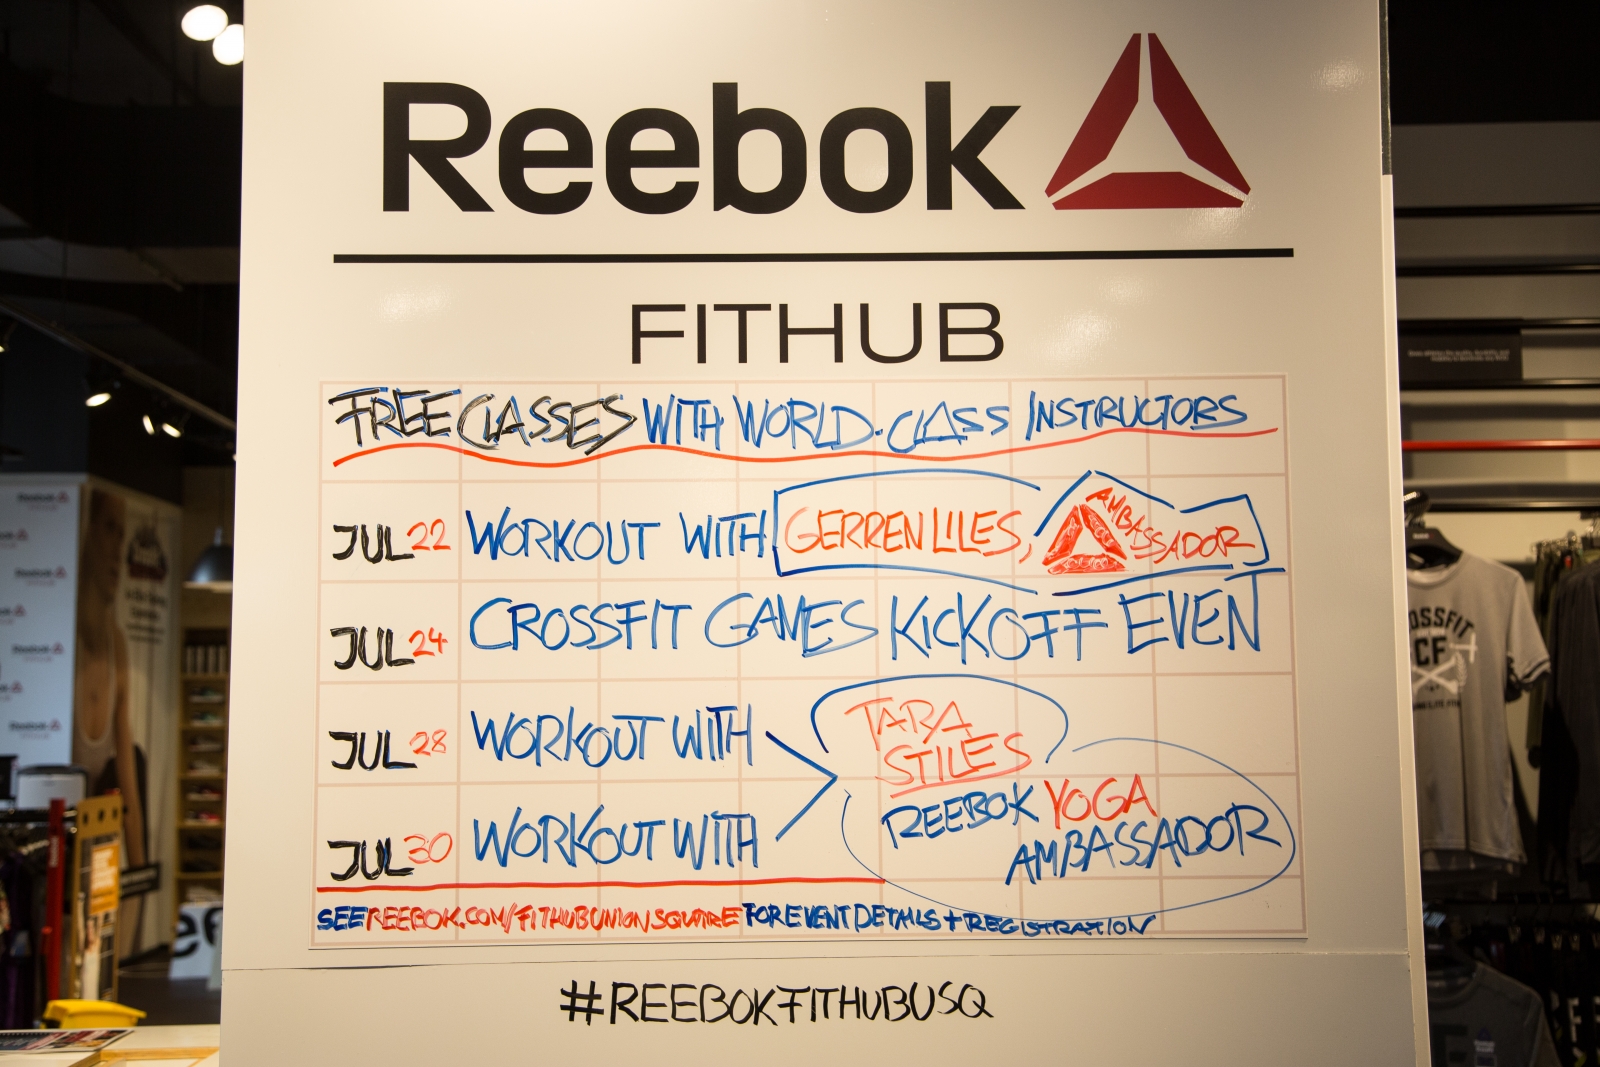 Reebok
FITHUB
FREE CLASSES WITH WORLD-CLASS INSTRUCTORS
JUL 22 WORKOUT WITH GERREN LILES, AMBASSADOR
JUL 24 CROSSFIT GAMES KICKOFF EVENT
JUL 28 WORKOUT WITH
TARA
STILES
JUL 30 WORKOUT WITH
REEBOK YOGA
AMBASSADOR
SEE REEBOK.COM/FITHUBUNIONSQUARE FOR EVENT DETAILS + REGISTRATION
#REEBOKFITHUBUSQ
Reebok
Reebok
Reebok
Reebok
OSSFIT
CF